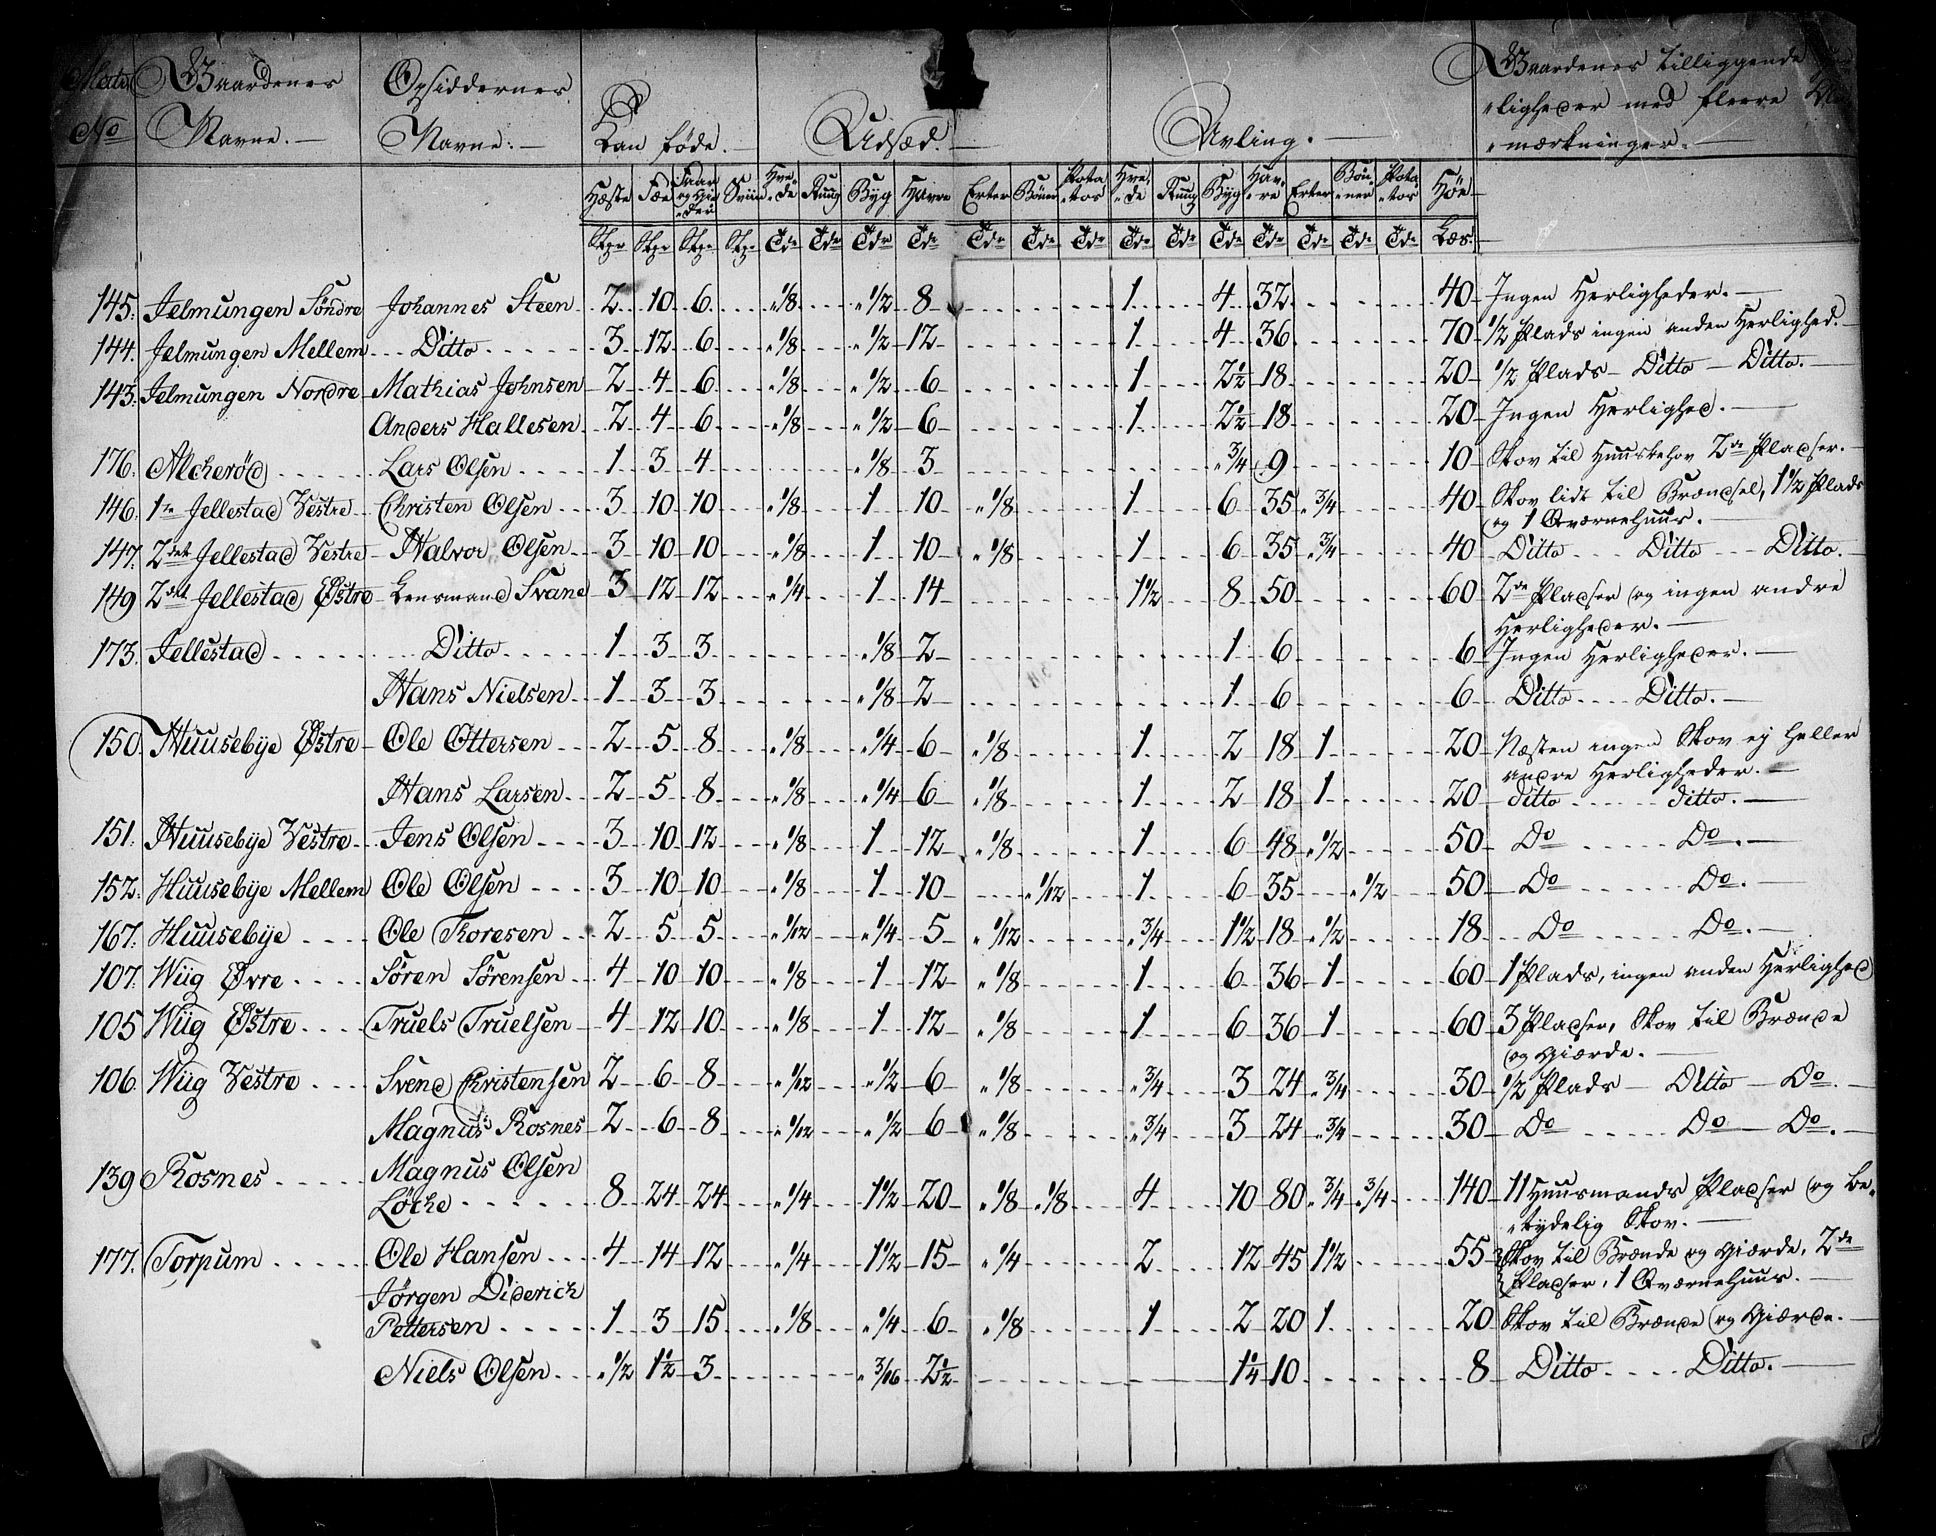 Matr Gaardenes Opsiddernes Kan føde. Udsæd. Avling. Gaardenes tilliggende
No Navne. Navne. ligheder med fleere
mærkninger.
Hæste Fæe Faar og Gieder Sviin Hvede Ruug Byg Havre Erter Bönner Potatos Hvede Ruug Byg Havre Erter Bönner Potatos Höe
Stkr Stkr Stkr Stkr Tdr Tdr Tdr Tdr Tdr Tdr Tdr Tdr Tdr Tdr Tdr Tdr Tdr Tdr Læs.
145. Jelmungen Söndre Johannes Steen 2 10 6 1/8 1/2 8 1 4 32 40 Ingen Herligheder.
144. Jelmungen Mellem Ditto 3 12 6 1/8 1/2 12 1 4 36 70 1/2 Plads ingen anden Herlighed.
143. Jelmungen Nordre Mathias Johnsen 2 4 6 1/8 1/2 6 1 2 1/2 18 20 1/2 Plads Ditto Ditto.
Anders Hallesen 2 4 6 1/8 1/2 6 1 2 1/2 18 20 Ingen Herlighed.
176. Alcheröd Lars Olsen 1 3 4 1/8 3 3/4 9 10 Skov til Huusbehov 2de Pladser.
146. 1te Jellestad Vestre Christen Olsen 3 10 10 1/8 1 10 1/8 1 6 35 3/4 40 Skov lidt til Brændsel, 1 1/2 Plads
og 1 Qværnehuus.
147. 2det Jellestad Vestre Halvor Olsen 3 10 10 1/8 1 10 1/8 1 6 35 3/4 40 Ditto Ditto Ditto.
149 2det Jellestad Østre Lensmand Svane 3 12 12 1/4 1 14 1 1/2 8 50 60 2de Pladser og ingen andre
Herligheder.
173. Jellestad Ditto 1 3 3 1/8 2 1 6 6 Ingen Herligheder.
Hans Nielsen 1 3 3 1/8 2 1 6 6 Ditto Ditto.
150. Huusebÿe Østre Ole Ottersen 2 5 8 1/8 1/4 6 1/8 1 2 18 1 20 Næsten ingen Skov ej heller
andre Herligheder.
Hans Larsen 2 5 8 1/8 1/4 6 1/8 1 2 18 1 20 ditto ditto.
151. Huusebÿe Vestre Jens Olsen 3 10 12 1/8 1 12 1/8 1 6 48 1/2 50 Do Do.
152. Huusebÿe Mellem Ole Olsen 3 10 10 1/8 1 10 1/12 1 6 35 1/2 50 Do Do.
167. Huusebÿe Ole Thoresen 2 5 5 1/12 1/4 5 1/12 3/4 1 1/2 18 1/2 18 Do Do.
107. Wiig Øvre Sören Sörensen 4 10 10 1/8 1 12 1/8 1 6 36 1 60 1 Plads, ingen anden Herlighed
105 Wiig Østre Truels Truelsen 4 12 10 1/8 1 12 1/8 1 6 36 1 60 3 Pladser, Skov til Brænde
og Giærde.
106. Wiig Vestre Svend Christensen 2 6 8 1/12 1/2 6 1/8 3/4 3 24 3/4 30 1/2 Plads Ditto Do.
Magnus Rosnes 2 6 8 1/12 1/2 6 1/8 3/4 3 24 3/4 30 Do Do Do.
139 Rosnes Magnus Olsen
Löcke 8 24 24 1/4 1 1/2 20 1/8 1/8 4 10 80 3/4 3/4 140 11 Huusmands Pladser og be-
tydelig Skov.
177. Torpum Ole Hansen 4 14 12 1/4 1 1/2 15 1/4 2 12 45 1 1/2 55 Skov til Brænde og Giærde, 2de
Pladser, 1 Qværnehuus.
Jörgen Diderich
Pettersen 1 3 15 1/8 1/4 6 1/8 1 2 20 1 20 Skov til Brænde og Giærde.
Niels Olsen 1/2 1 1/2 3 3/16 2 1/2 1 1/4 10 8 Ditto Ditto.